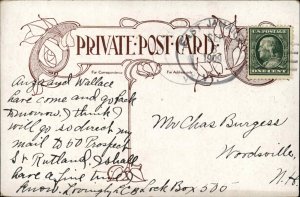 PRIVATE POST CARD
For Correspondence
For Address
1908
U.S. POSTAGE
ONE CENT
and Wallace
have come and go back
tomorrow. I think I
will go so direct my
mail to 60 Prospect
St Rutland, I shall
have a fine time
know. Lovingly L C B Lock Box 500
Mr Chas Burgess
Woodsville,
N.H.